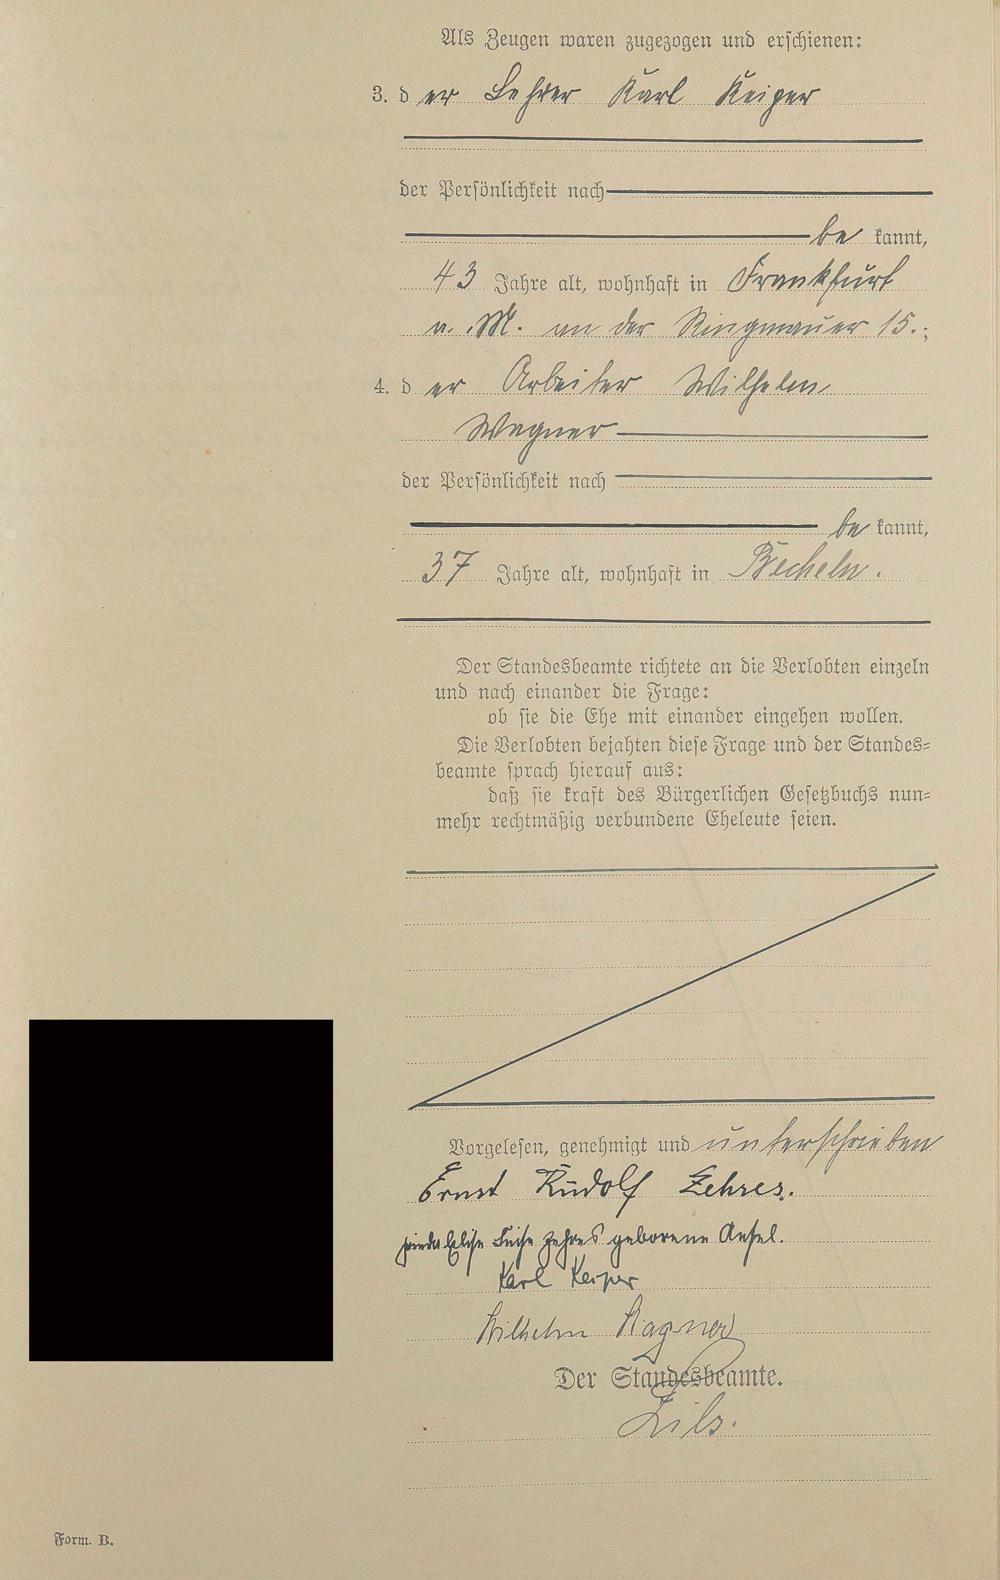 Als Zeugen waren zugezogen und erschienen:
3. der Lehrer Karl Keiper
der Persönlichkeit nach
be kannt,
43 Jahre alt, wohnhaft in Frankfurt
a. M. an der Ringmauer 15.;
4. der Arbeiter Wilhelm
Wagner
der Persönlichkeit nach
be kannt,
37 Jahre alt, wohnhaft in Becheln.
Der Standesbeamte richtete an die Verlobten einzeln
und nach einander die Frage:
ob sie die Ehe mit einander eingehen wollen.
Die Verlobten bejahten diese Frage und der Standes-
beamte sprach hierauf aus:
daß sie kraft des Bürgerlichen Gesetzbuchs nun-
mehr rechtmäßig verbundene Eheleute seien.
Vorgelesen, genehmigt und unterschrieben
Ernst Rudolf Zehres.
Frieda Elise Luise Zehres geborene Ansel.
Karl Keiper
Wilhelm Wagner
Der Standesbeamte.
Zils.
Form. B.